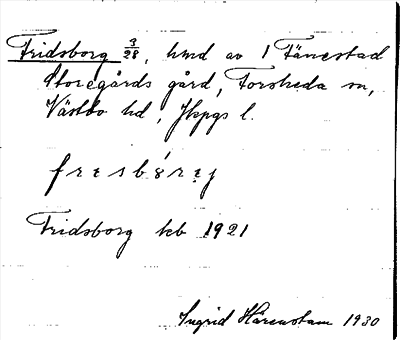 Fridsborg 9/28, hmd av 1 Tånestad
Storegårds gård, Forsheda sn,
Västbo hd, Jkpgs l.
fresbór̨ej
Fridsborg kb 1921
Ingrid Härenstam 1930